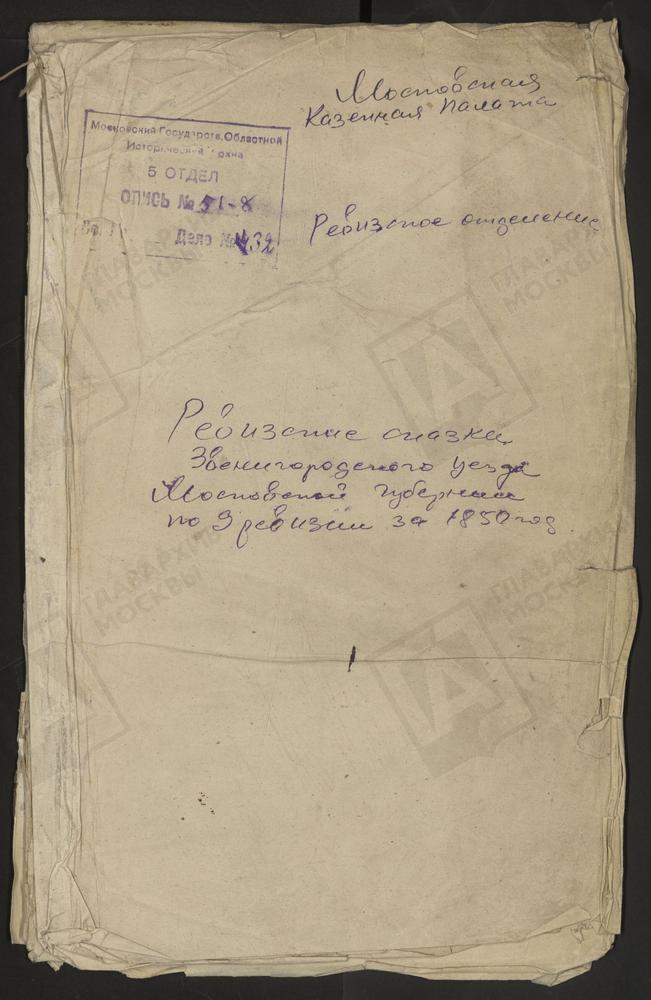 Московская
Казенная Палата
Московский Государств. Областной
Исторический Архив
5 ОТДЕЛ
ОПИСЬ № 51-8
Дело № 432
Ревизское отделение
Ревизские сказки
Звенигородского уезда
Московской губернии
по 9 ревизии за 1850 год.
ГЛАВАРХИВ
МОСКВЫ
ГЛАВАРХИВ
МОСКВЫ
ГЛАВАРХИВ
МОСКВЫ
ГЛАВАРХИВ
МОСКВЫ